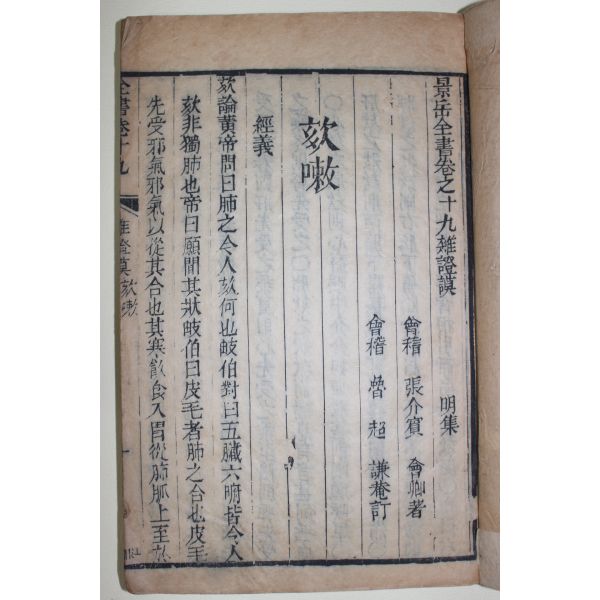 景岳全書卷之十九雜證謨 明集
會稽 張介賓 會卿著
會稽 魯超 謙菴訂
欬嗽
經義
欬論黃帝問曰肺之令人欬何也岐伯對曰五臟六腑皆令人
欬非獨肺也帝曰願聞其狀岐伯曰皮毛者肺之合也皮毛
先受邪氣邪氣以從其合也其寒飲食入胃從肺脈上至於
全書卷十九 雜證謨 欬嗽 一